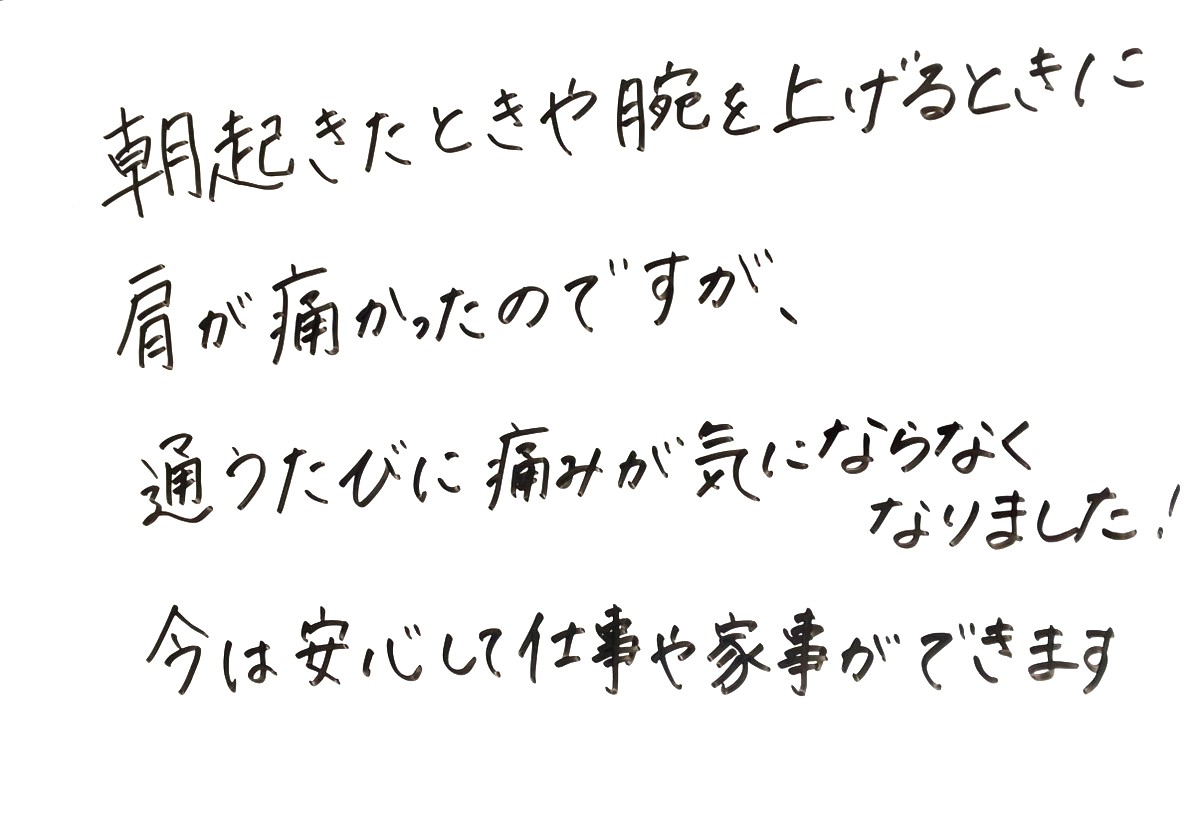 朝起きたときや腕を上げるときに
肩が痛かったのですが、
通うたびに痛みが気にならなく
なりました!
今は安心して仕事や家事ができます